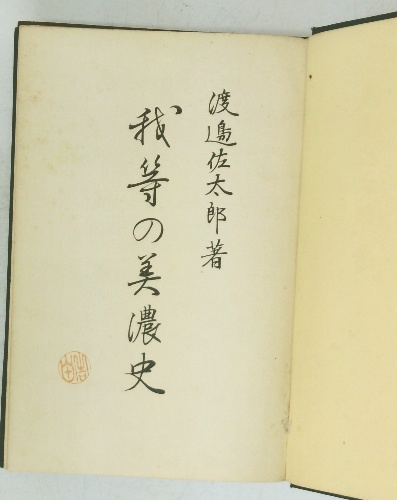 渡邉佐太郎著
我等の美濃史